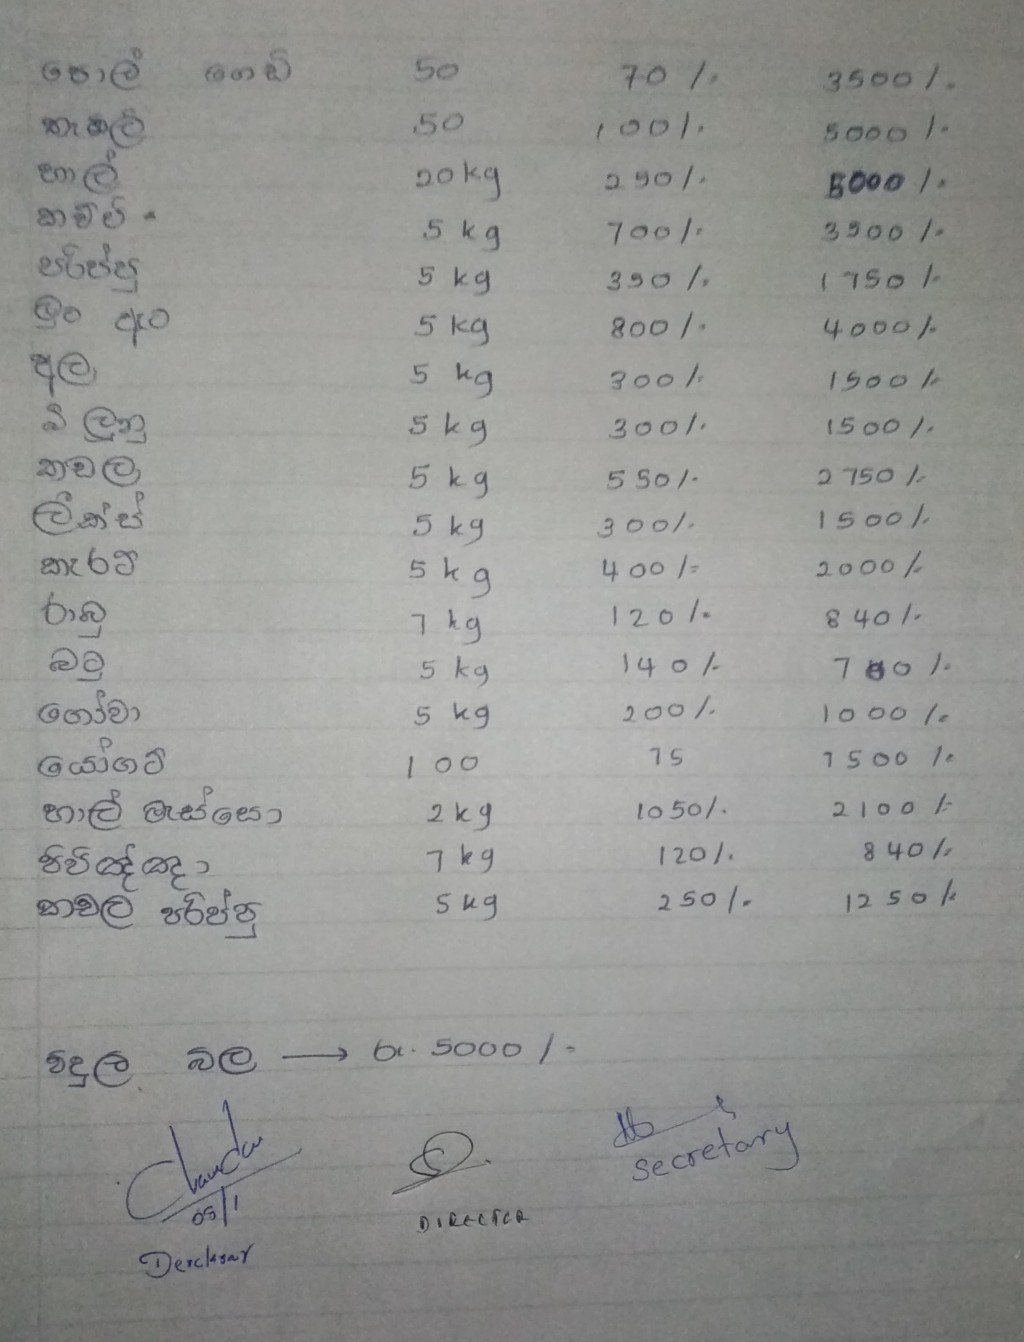 පොල් ගෙඩි 50 70/- 3500/-
කැවිලි 50 100/- 5000/-
හාල් 20kg 250/- 5000/-
කව්පි 5 kg 700/- 3500/-
පරිප්පු 5 kg 350/- 1750/-
මුං ඇට 5 kg 800/- 4000/-
අල 5 kg 300/- 1500/-
බී ලූනු 5 kg 300/- 1500/-
කඩල 5 kg 550/- 2750/-
ලීක්ස් 5 kg 300/- 1500/-
කැරට් 5 kg 400/- 2000/-
රාබු 7 kg 120/- 840/-
බටු 5 kg 140/- 700/-
ගෝවා 5 kg 200/- 1000/-
යෝගට් 100 75 7500/-
හාල් මැස්සො 2kg 1050/- 2100/-
පිපිඤ්ඤා 7 kg 120/- 840/-
කඩල පරිප්පු 5 kg 250/- 1250/-
විදුලි බල → රු. 5000/-
05/1
DIRECTOR
Secretary